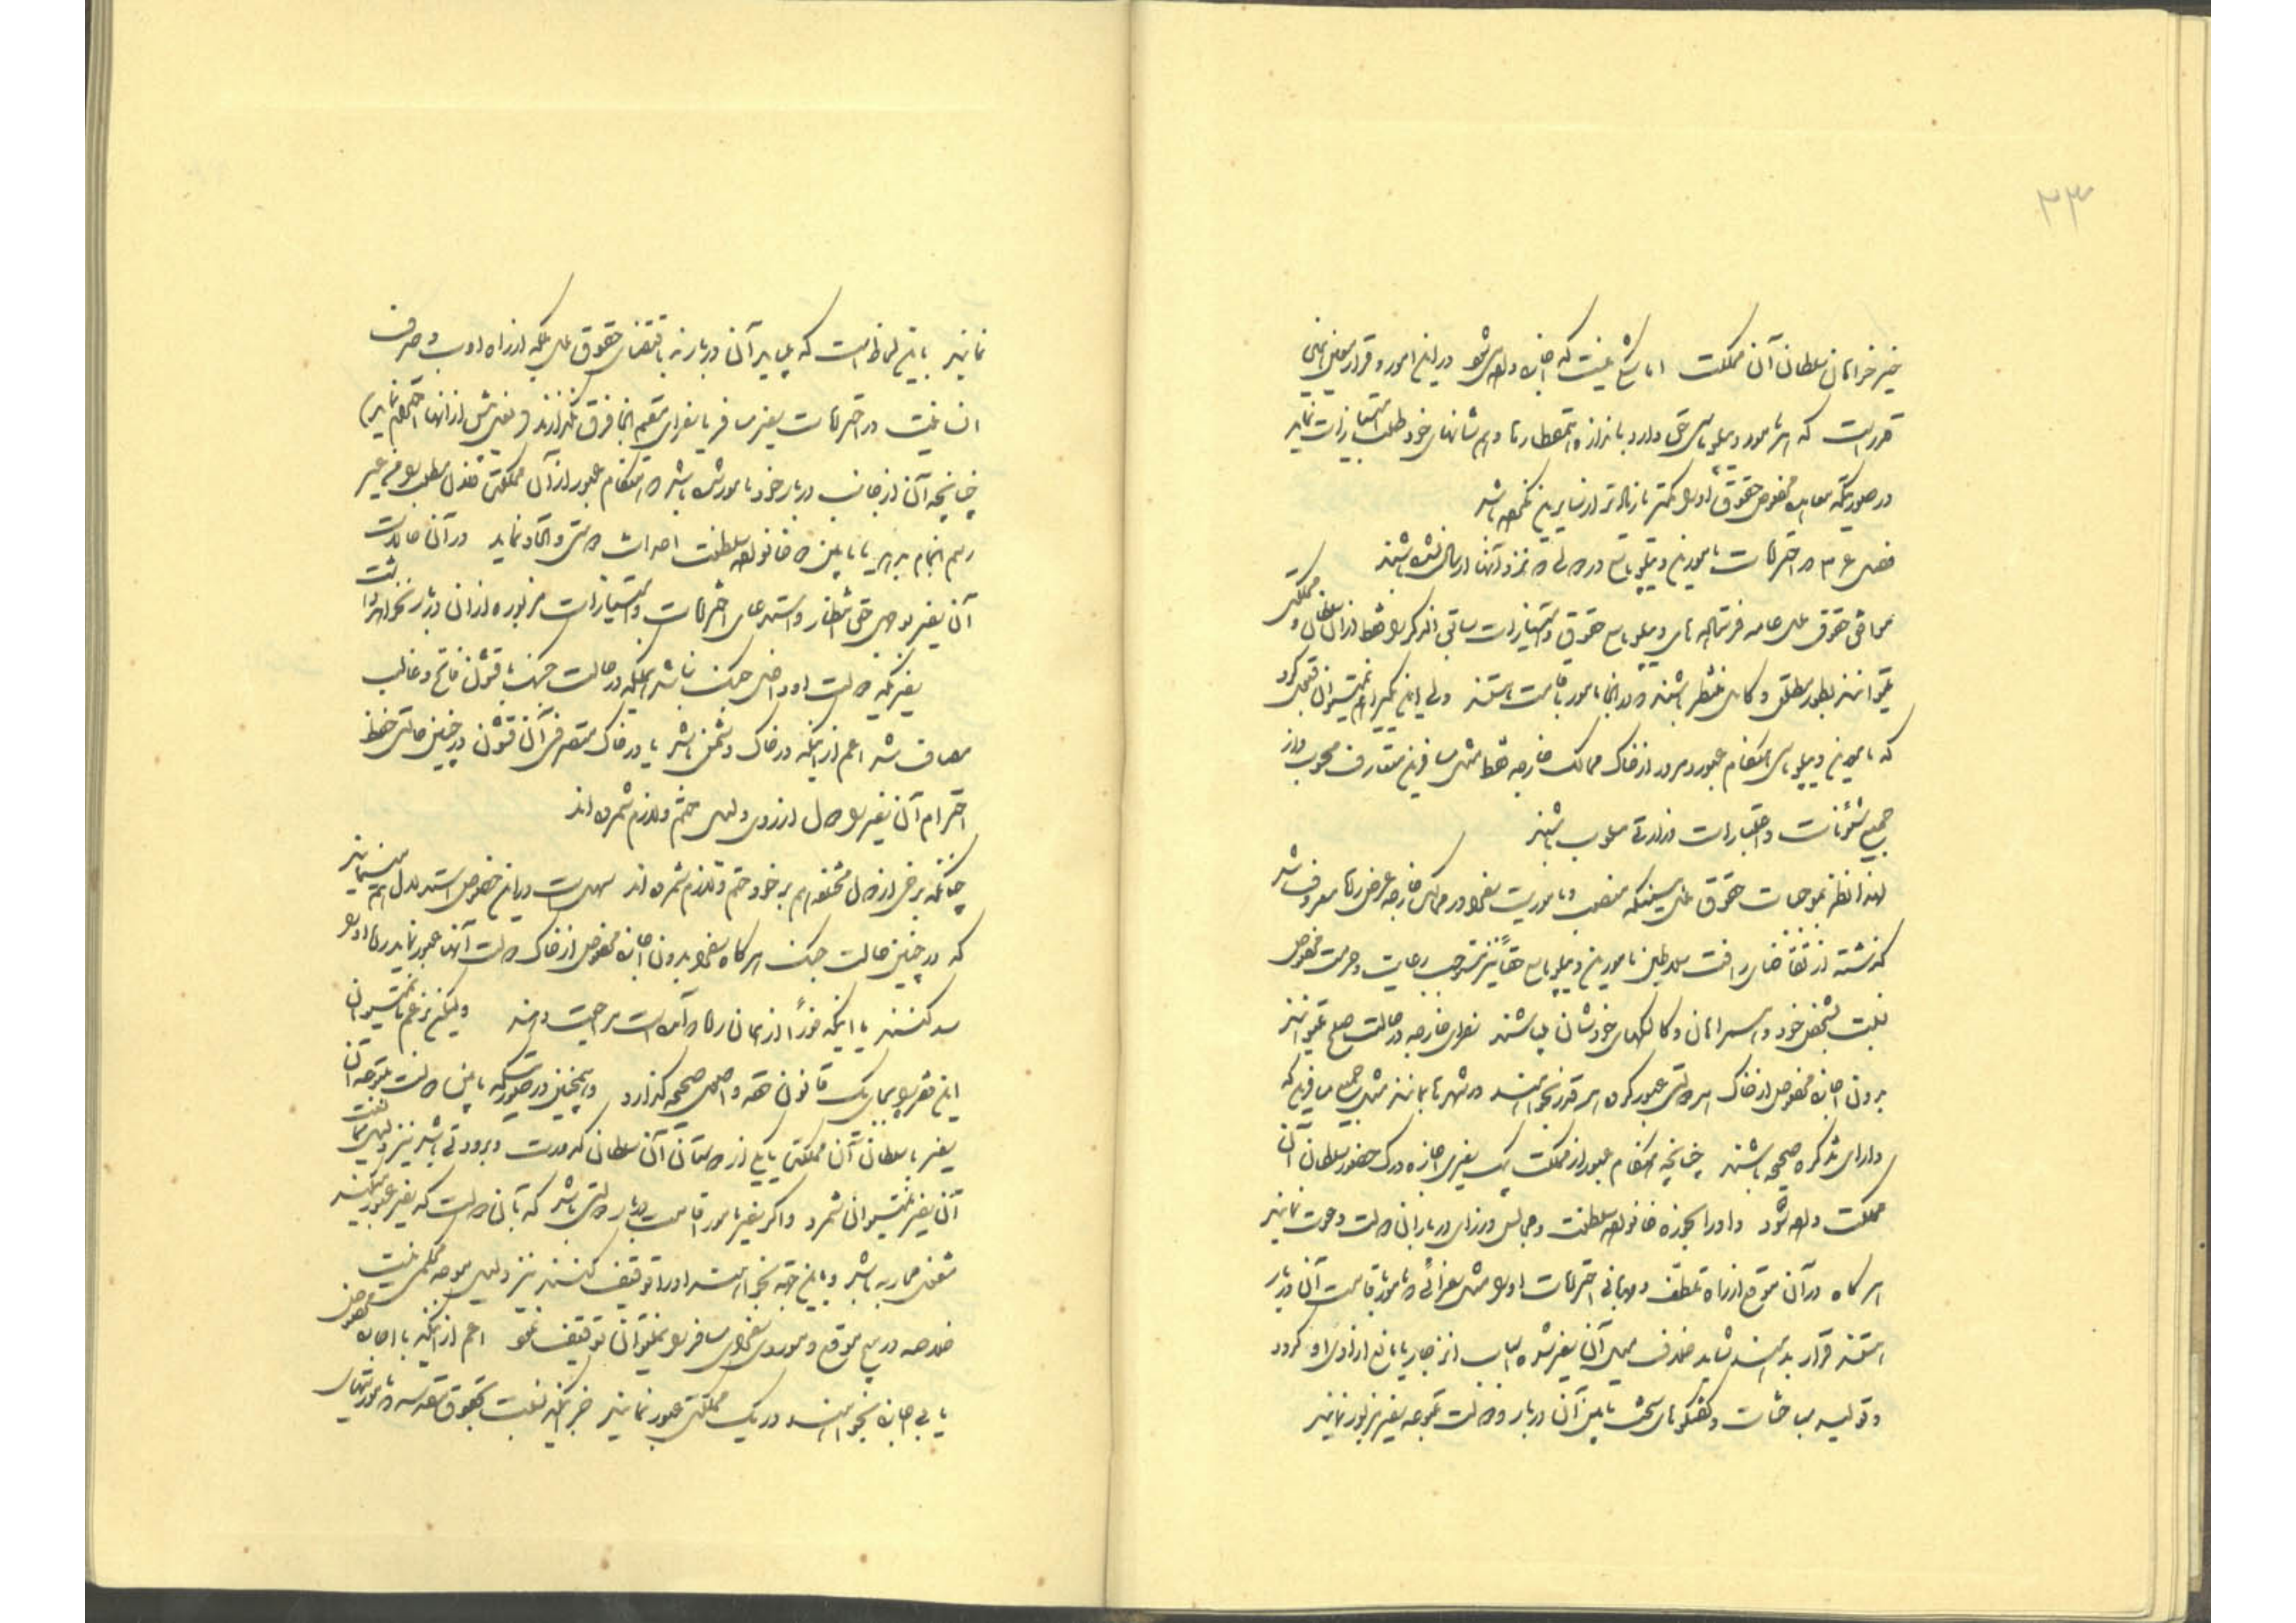 ۲۳
خیرخواهان سلطان آن مملکت اما شکی نیست که اجازه داده میشود در این امور و قرار معین
مقرر است که هر مأمور دیپلوماسی حق دارد باندازه و هم شانهای خود طلب امتیازات نماید
در صورتیکه معاهده مخصوص حقوق او را کمتر یا زیادتر از سایرین نکرده باشد
فصل ۳۶ در احترامات مأمورین دیپلوماسی در دولی که نزد آنها ارسال نشده باشند
موافق حقوق ملل عامه فرستاده های دیپلوماسی حقوق و امتیازات سابق الذکر را فقط از آن سلطان و مملکتی
میتوانند بطور مطلق و کامل منتظر باشند که در آنجا مأمور باقامت هستند ولی این را هم نمیتوان قبول کرد
که مأمورین دیپلوماسی هنگام عبور و مرور از خاک ممالک خارجه فقط مثل مسافرین متعارف محسوب و از
جمیع شئونات و اعتبارات وزارتی مسلوب باشند
لهذا نظر بموجبات حقوق ملل همینکه منصب و مأموریت سفرا در ممالک خارجه عرض راه معروف شد
گذشته از تقاضای رأفت سلاطین مأمورین دیپلوماسی حقاً نیز مستوجب رعایت و حرمت مخصوص
نسبت بشخص خود و همراهان و کالسکهای خودشان میباشند سفرای خارجه در حالت صلح میتوانند
بدون اجازه مخصوص از خاک هر دولتی عبور کرده هر قدر بخواهند در شهرها بمانند مثل جمیع مسافرین که
دارای تذکره صحیحه باشند چنانچه هنگام عبور از مملکت یک سفیری اجازه درک حضور سلطان آن
مملکت داده شود و او را بحوزه خانواده سلطنت و مجالس وزرای درباران دولت دعوت نمایند
هرگاه در آن موقع از راه تلطف و مهربانی احترامات او را مثل سفرائی که مأمور اقامت آن دربار
هستند قرار بدهند شاید خلاف میل آن سفیر شده اسباب انزجار یا مانع از ادای او گردد
و تولید مباحثات و گفتگوهای سخت مابین آن دربار و دولت متبوعه سفیر مزبور نمایند
نمایند باین لحاظ است که میباید آن دربار نه باقتضای حقوق ملل بلکه از راه ادب و صرف
انسانیت در احترامات سفیر مسافر با سفرای مقیم آنجا فرق نگذارند
چنانچه آن از جانب دربار خود مأمور شده باشد که هنگام عبور از آن مملکت فلان مطلب را غیر
رسم انجام بدهد یا مابین دو خانواده سلطنت احداث دوستی و اتحاد نماید در آن حالت
آن سفیر بوجه حق انتظار و استدعای احترامات و امتیازات مزبوره از آن دربار نخواهد داشت
سفیریکه دولت او داخل جنگ باشد همینکه در حالت جنگ با قشون فاتح و غالب
مصادف شد اعم از اینکه در خاک دشمن باشد یا در خاک متصرفی آن قشون در چنین حالتی حفظ
احترام آن سفیر را دول ازروی دلیل حتم و لازم شمرده اند
چنانکه برخی از دول متحده هم بر خود حتم و لازم شمرده اند سهل است در این خصوص استدلال هم مینمایند
که در چنین حالت جنگ هرگاه سفرا بدون اجازه مخصوص از خاک دولت آنها عبور نماید راه او را
سد کنند یا اینکه فوراً از همان راه که آمده است مراجعت دهند ولیکن بزعم ما نمیتوان
این فقره را بجای یک قانون حقه و اصل صحیحه گذارد و همچنین در صورتیکه مابین دولت متبوعه آن
سفیر با سلطان آن مملکت یا یکی از دوستان آن سلطان کدورت و برودتی باشد نیز دلیل ممانعت
آن سفیر نمیتوان شمرد و اگر سفیر مأمور اقامت دربار دولتی باشد که با آن دولت که سفیر عبور میکند
مشغول محاربه باشد و باین جهة بخواهند او را توقیف کنند نیز دلیل موجه محکمی نیست
خلاصه در هیچ موقع و موردی سفرای مسافر را نمیتوان توقیف نمود اعم از اینکه با اجازه مخصوص
یا بی اجازه بخواهند در یک مملکتی عبور نمایند جز اینکه نسبت بحقوق مقدسه و مأموریتهای